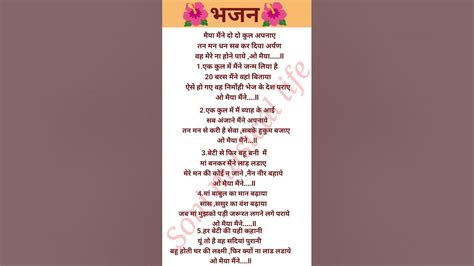 भजन
मैया मैंने दो दो कुल अपनाए
तन मन धन सब कर दिया अर्पण
वह मेरे ना होने पाये ,ओ मैया.....ll
1.एक कुल में मैंने जन्म लिया है
20 बरस मैंने वहां बिताया
ऐसे हो गए वह निर्मोही भेज के देश पराए
ओ मैया मैंने....ll
2.एक कुल में मैं ब्याह के आई
सब अंजाने मैंने अपनाये
तन मन से करी है सेवा ,सबके हुकुम बजाए
ओ मैया मैंने...ll
3.बेटी से फिर बहू बनी में
मां बनकर मैंने लाड लडाए
मेरे मन की कोई न जाने ,नैन नीर बहाये
ओ मैया मैंने....ll
4.मां बाबुल का मान बढ़ाया
सास ,ससुर का वंश बढ़ाया
जब मां मुझको पड़ी जरूरत लगने लगे पराये
ओ मैया मैंने....ll
5.हर बेटी की यही कहानी
यूं तो है वह सदियां पुरानी
बहू होती घर की लक्ष्मी ,फिर क्यों ना लाड लडाये
ओ मैया मैंने....ll